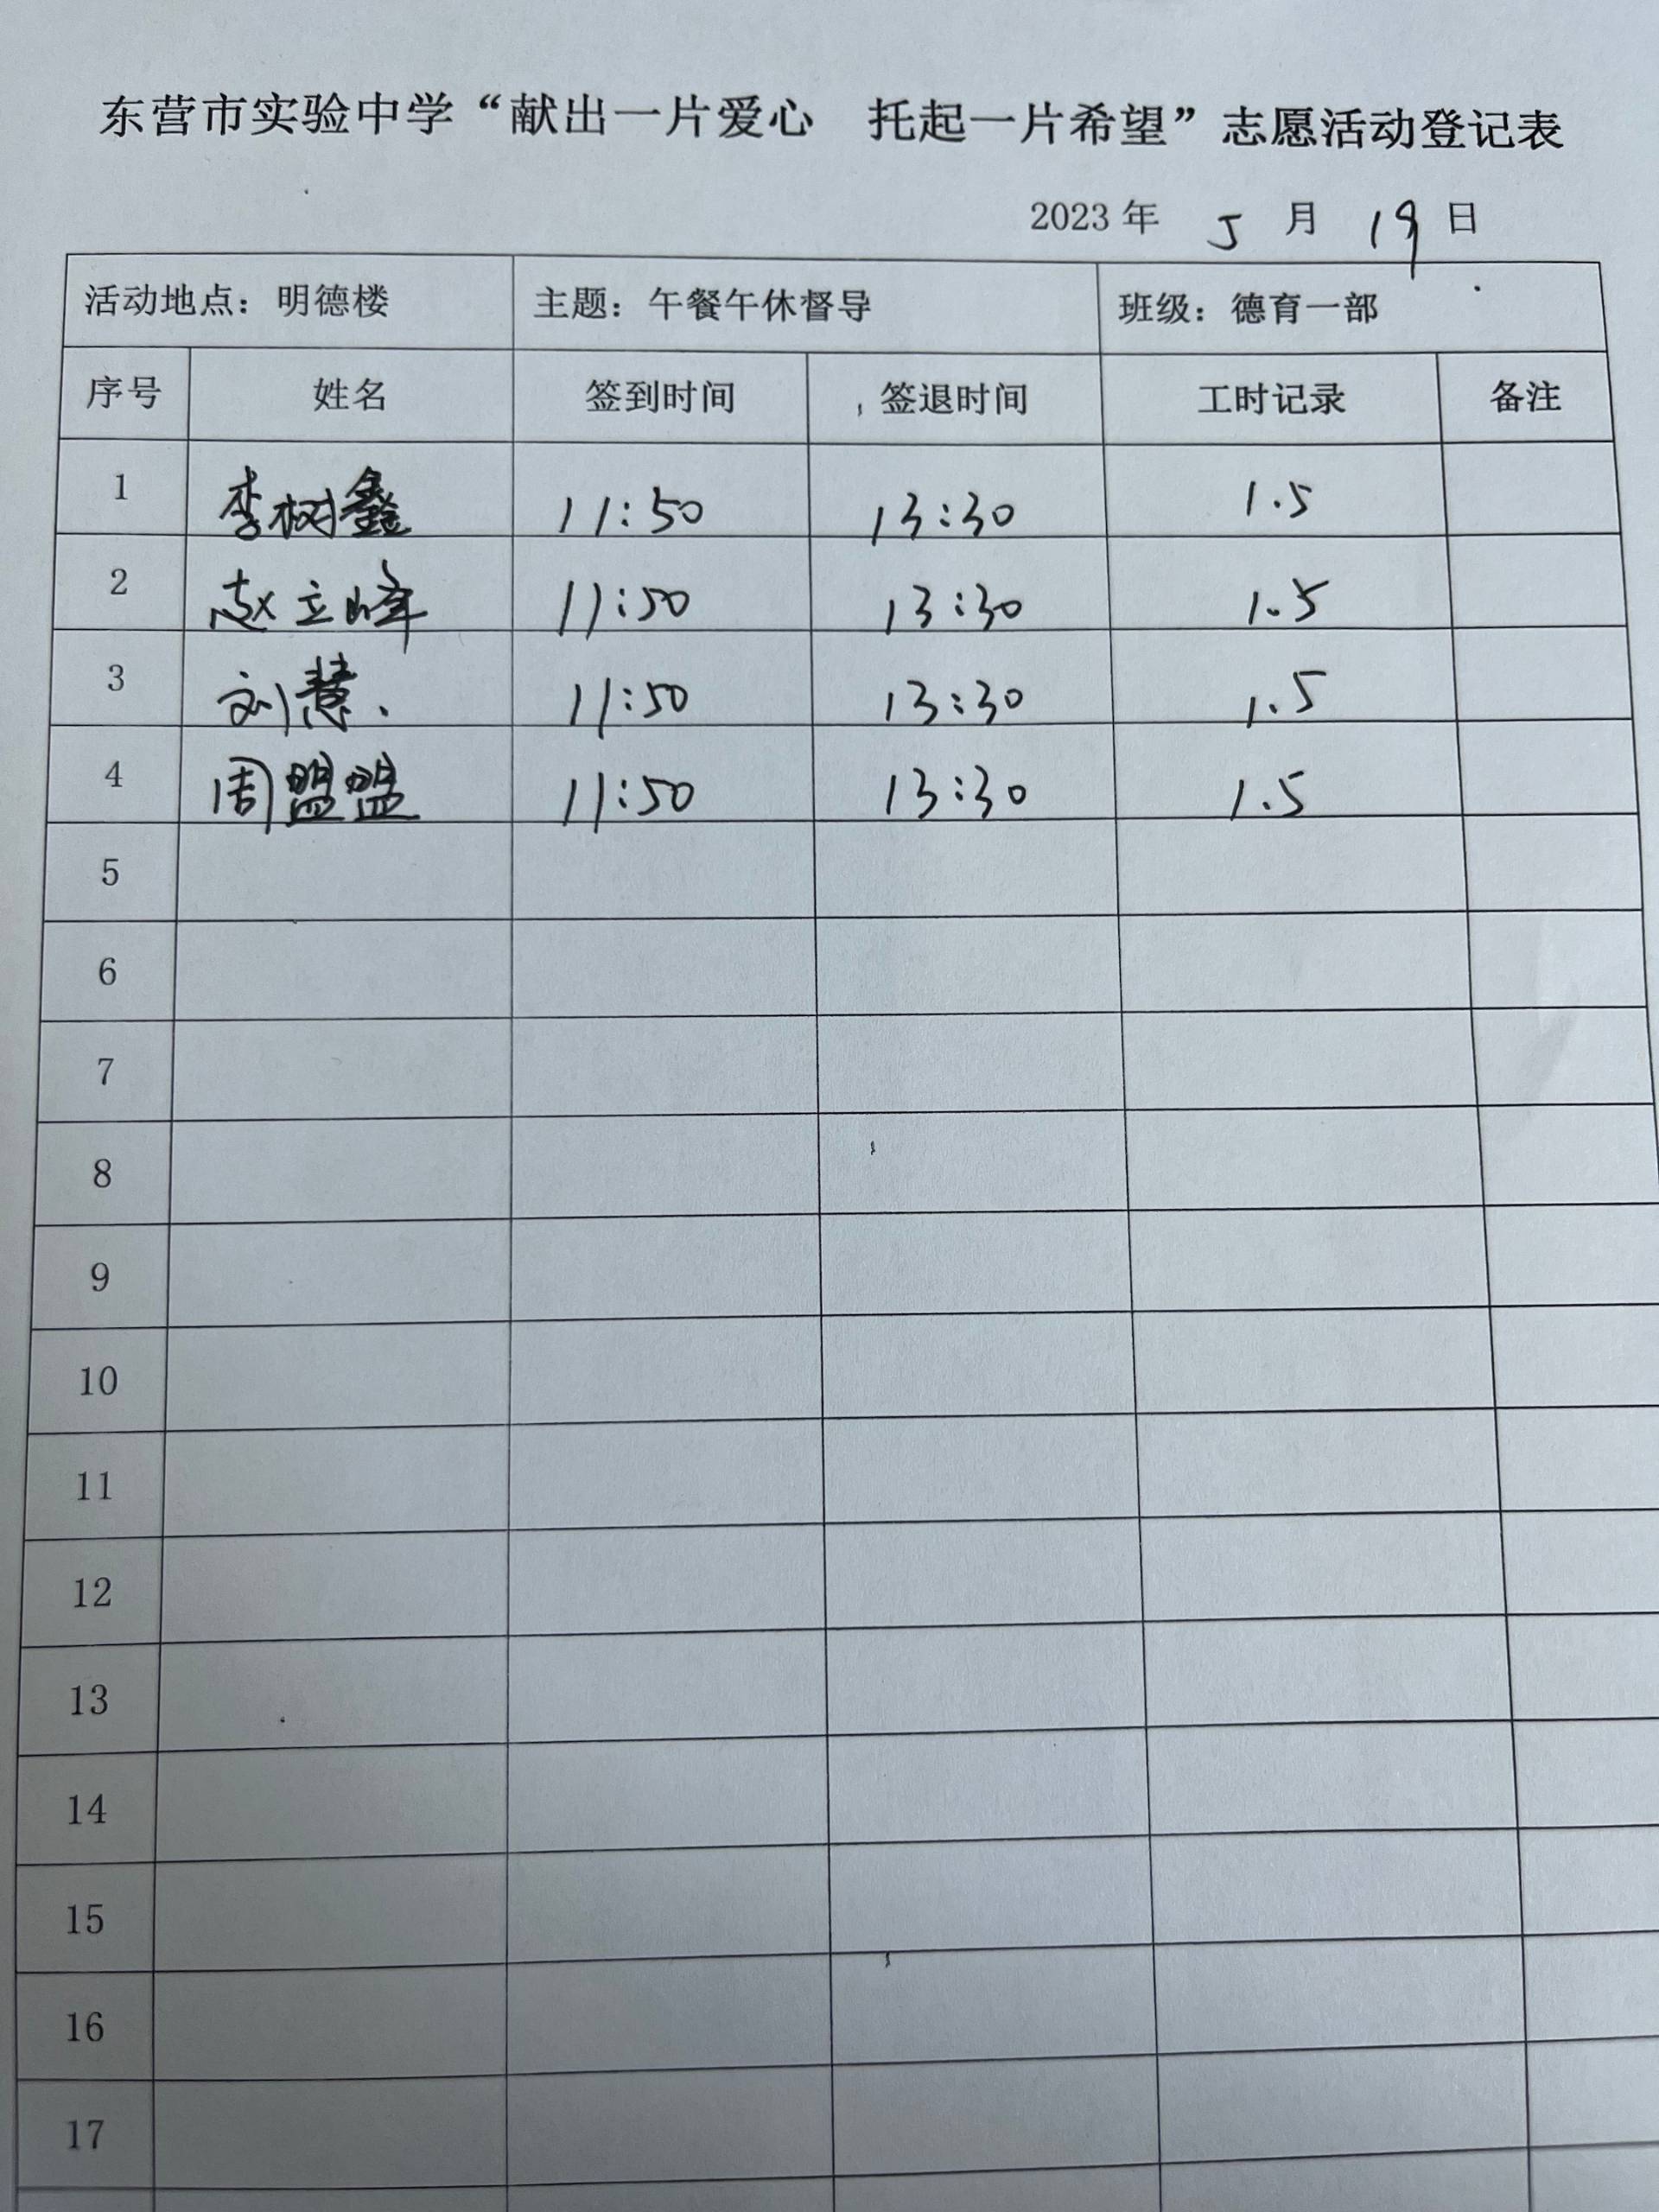 东营市实验中学“献出一片爱心 托起一片希望”志愿活动登记表
2023 年 5 月 19 日
活动地点：明德楼 主题：午餐午休督导 班级：德育一部
序号 姓名 签到时间 签退时间 工时记录 备注
1 李树鑫 11:50 13:30 1.5
2 赵立峰 11:50 13:30 1.5
3 刘慧 11:50 13:30 1.5
4 周盟盟 11:50 13:30 1.5
5
6
7
8
9
10
11
12
13
14
15
16
17